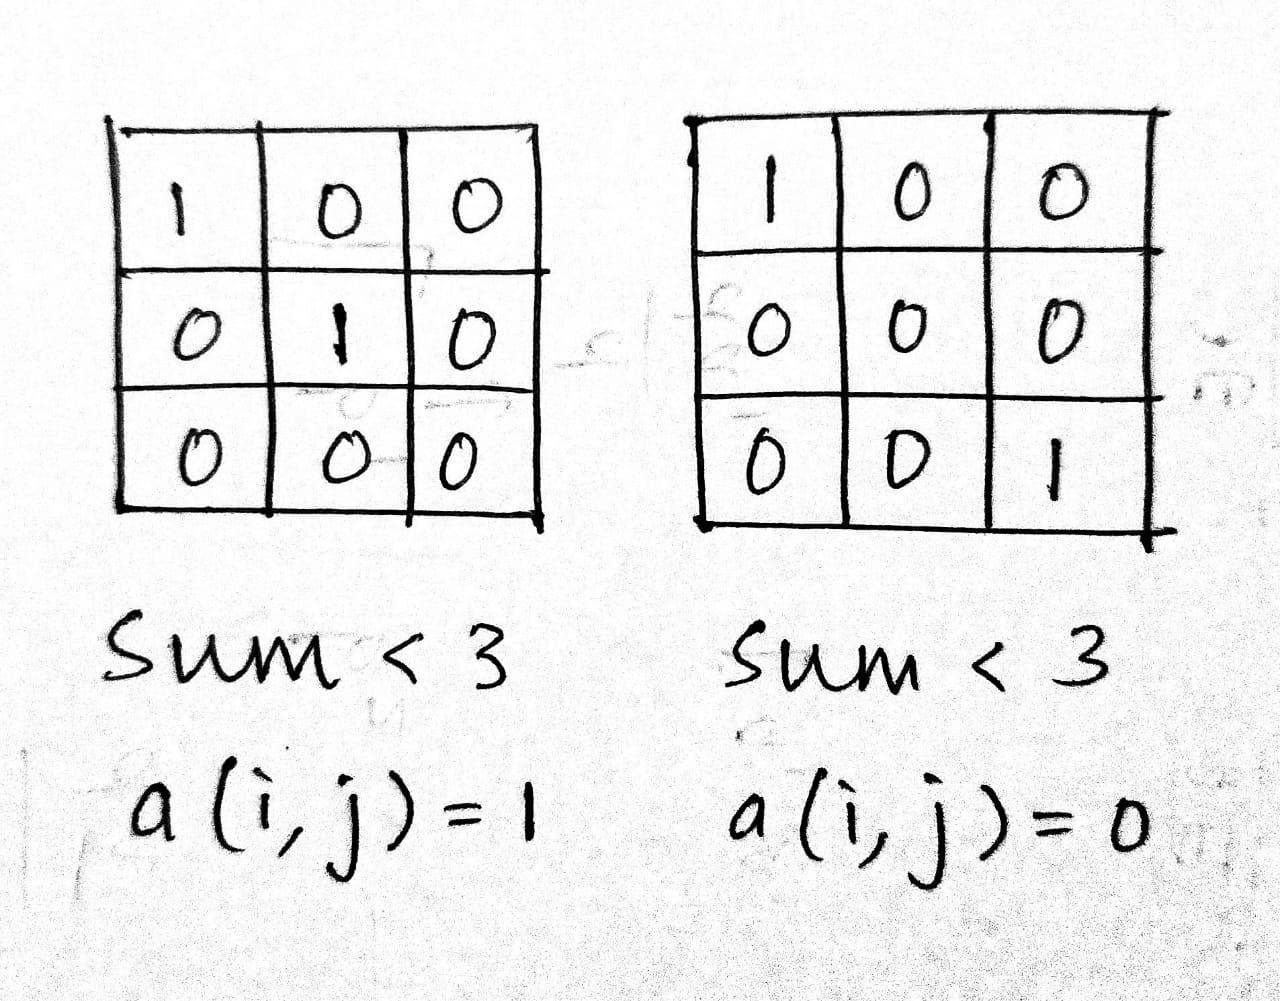 1 0 0
0 1 0
0 0 0
sum < 3
a(i,j)=1
1 0 0
0 0 0
0 0 1
sum < 3
a(i,j)=0